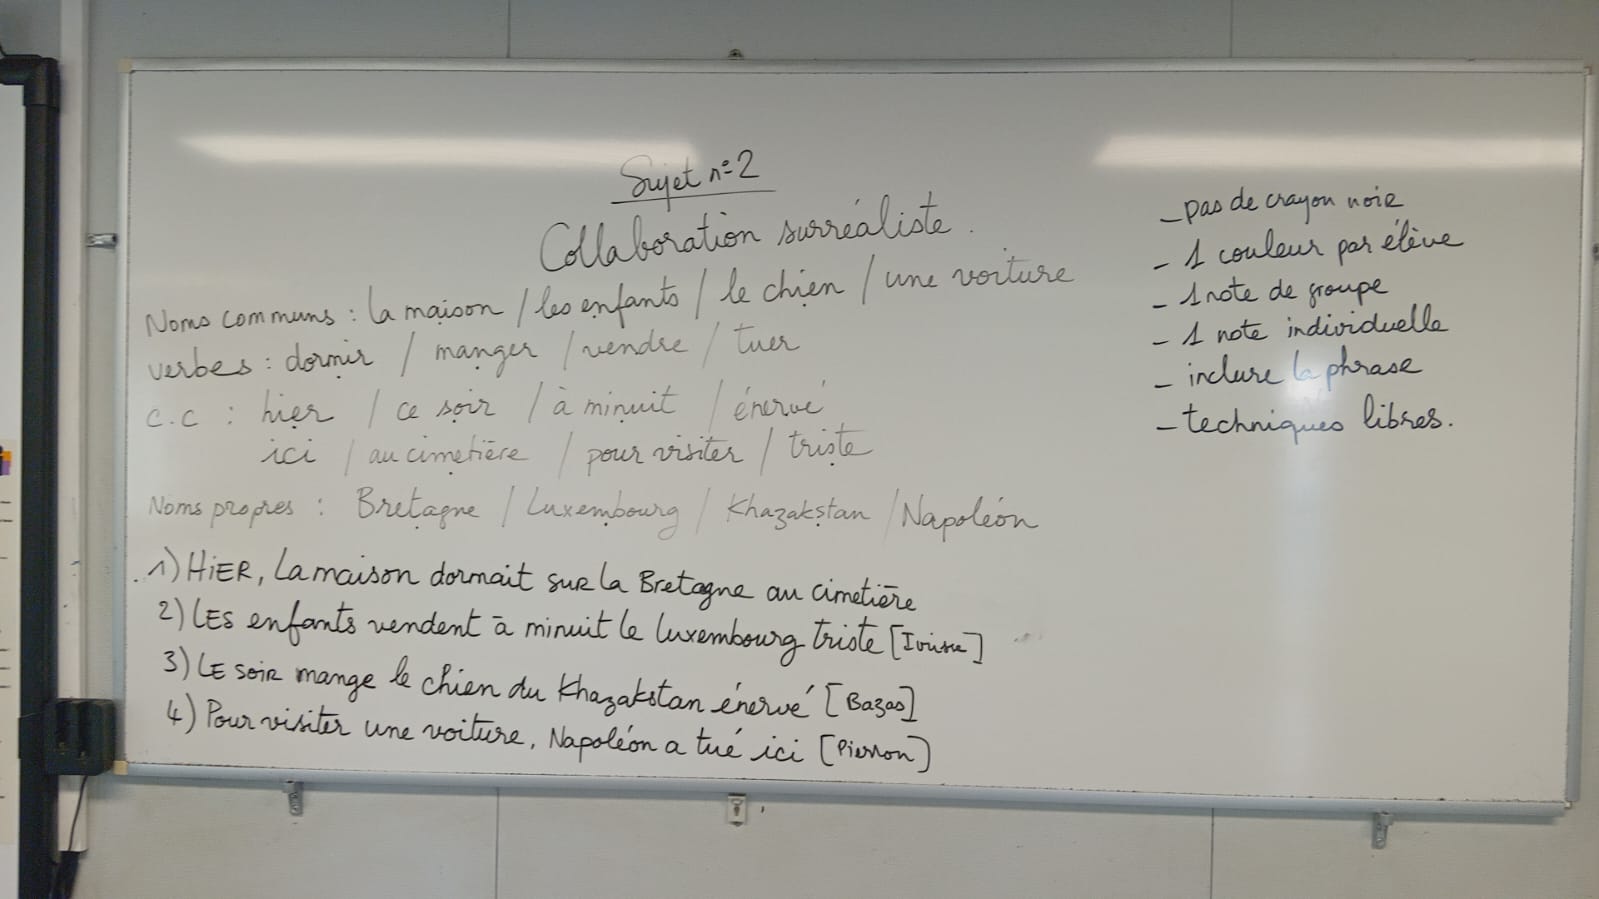 Sujet n°2
Collaboration surréaliste.
Noms communs : la maison / les enfants / le chien / une voiture
verbes : dormir / manger / vendre / tuer
c.c : hier / ce soir / à minuit / énervé
ici / au cimetière / pour visiter / triste
Noms propres : Bretagne / Luxembourg / Khazakstan / Napoléon
1) HiER, la maison dormait sur la Bretagne au cimetière
2) LES enfants vendent à minuit le luxembourg triste
3) LE soir mange le chien du Khazakstan énervé [Bazas]
4) Pour visiter une voiture, Napoléon a tué ici [Pierron]
- pas de crayon noir
- 1 couleur par élève
- 1 note de groupe
- 1 note individuelle
- inclure la phrase
- techniques libres.